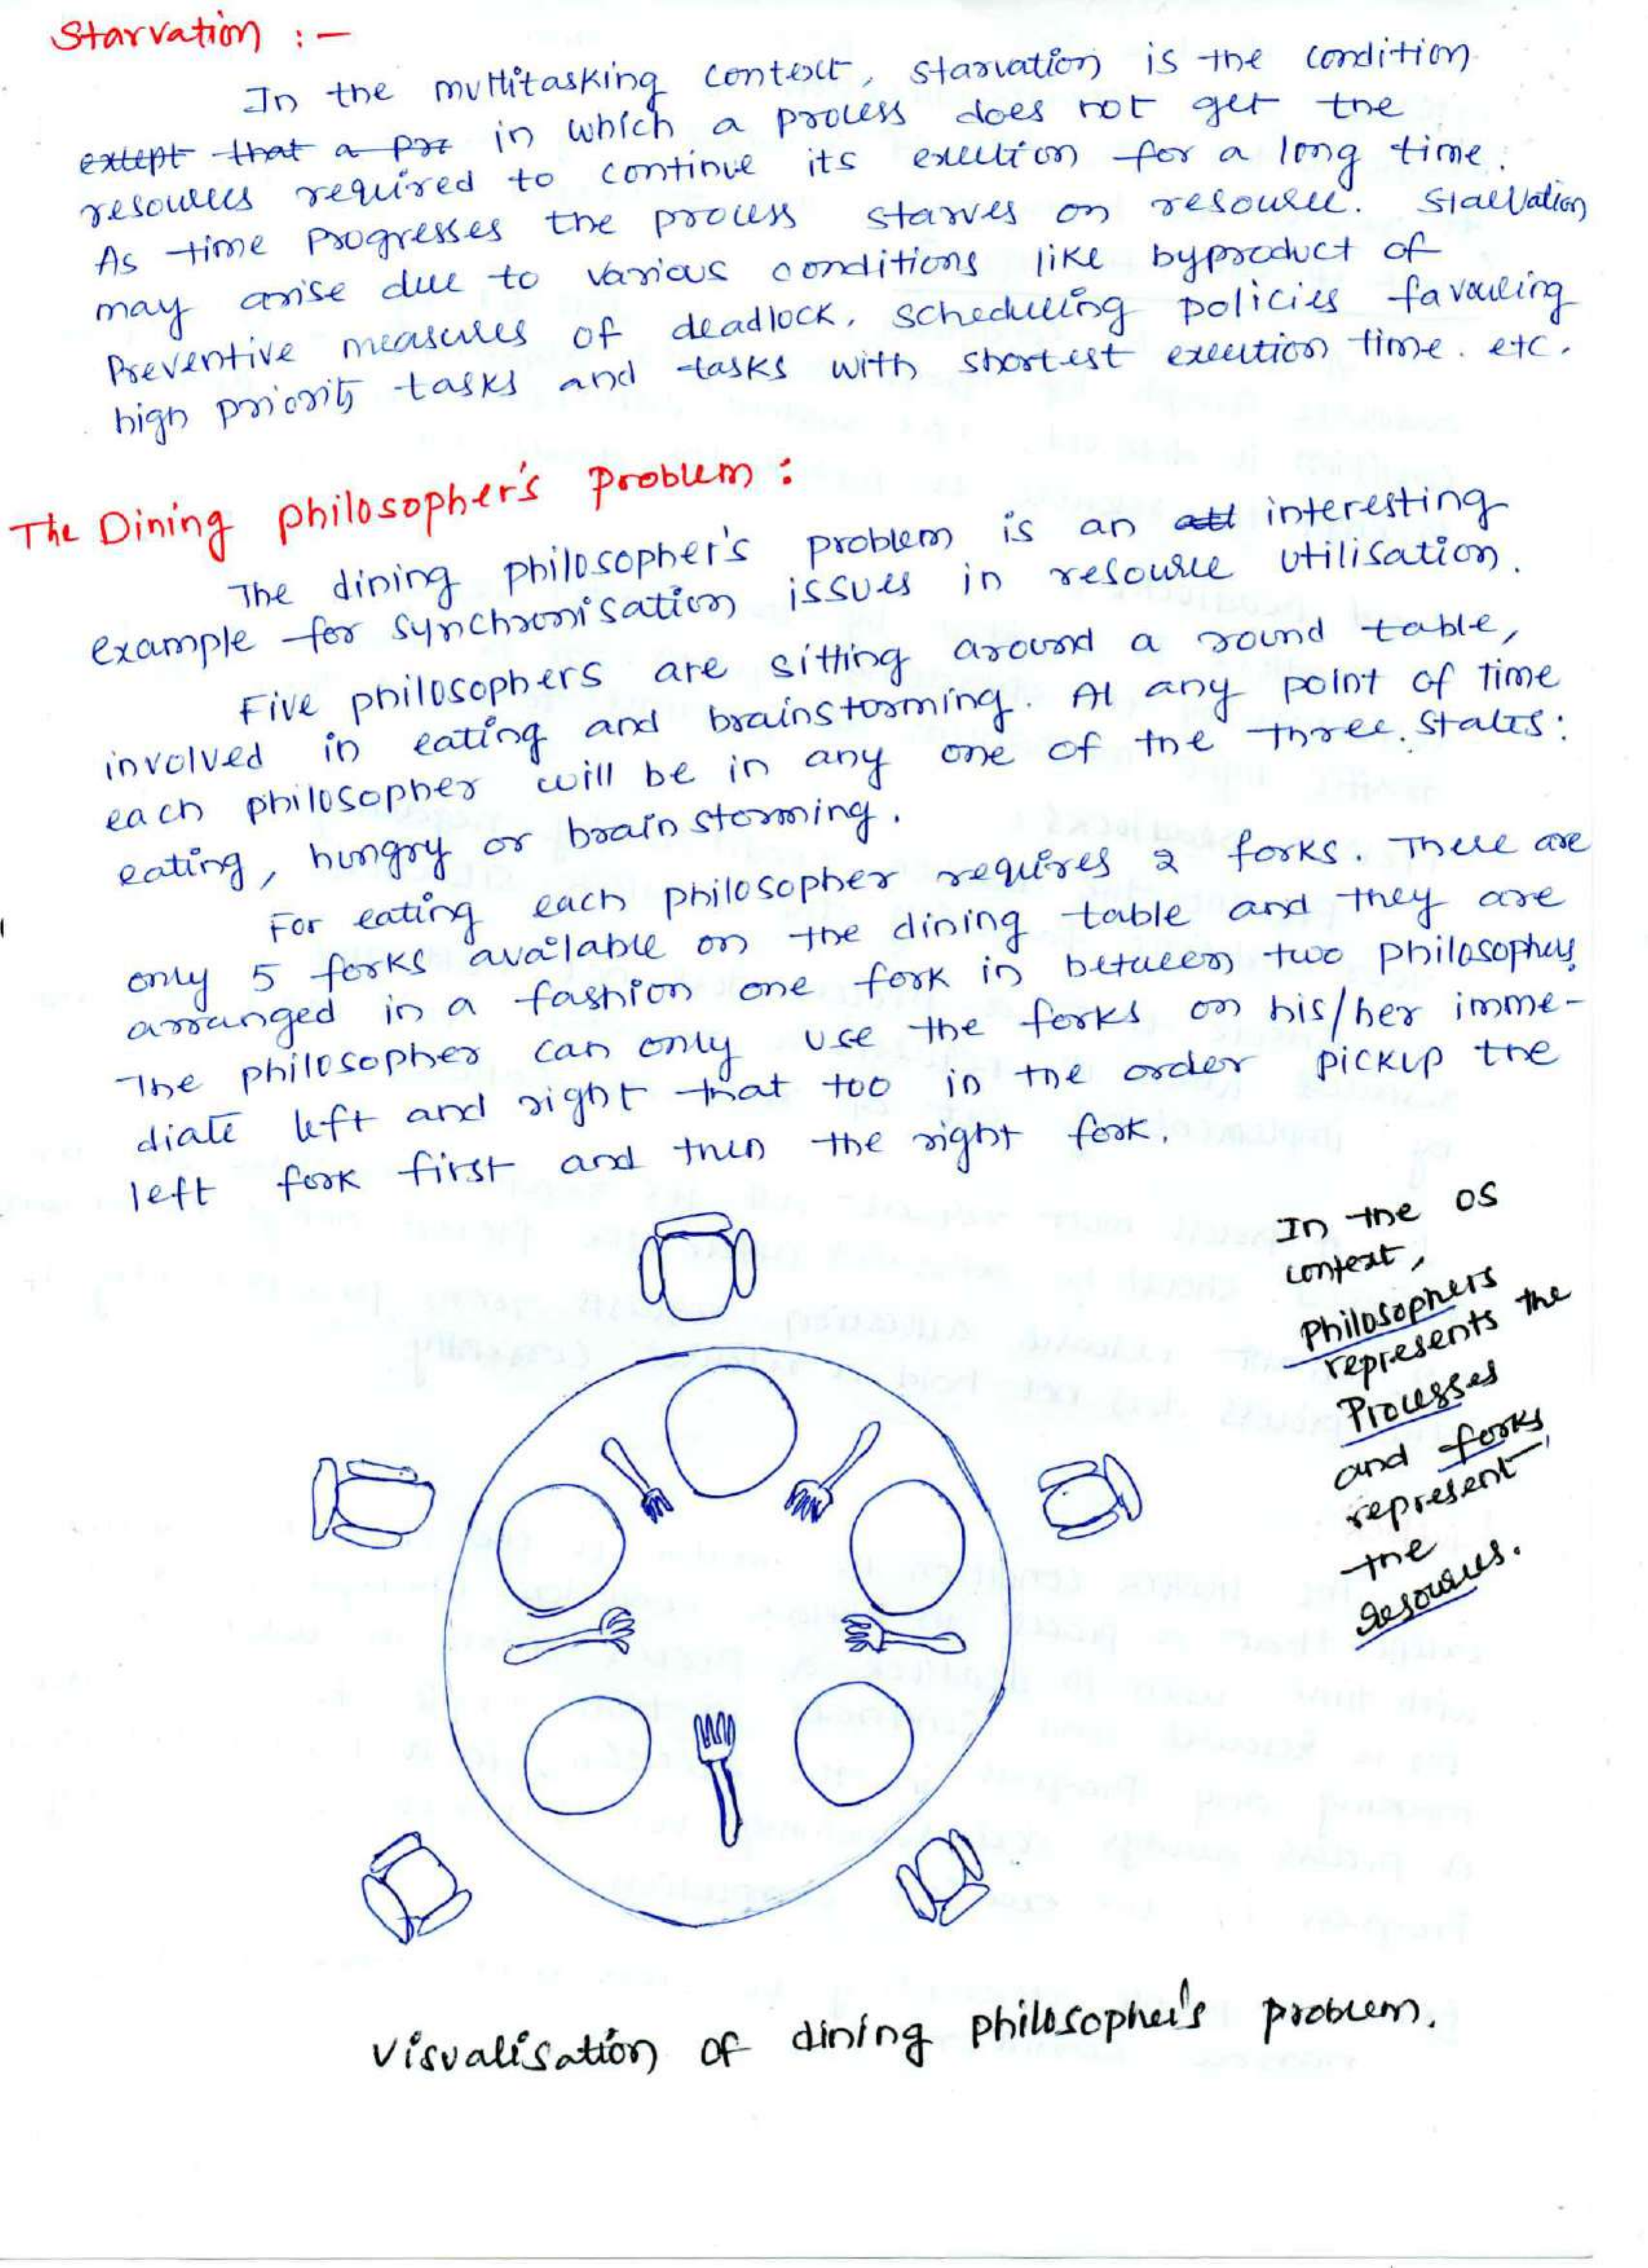 Starvation :-
In the multitasking context, starvation is the condition
except that a pr in which a process does not get the
resources required to continue its execution for a long time.
As time progresses the process starves on resource. Starvation
may arise due to various conditions like byproduct of
Preventive measures of deadlock, scheduling policies favouring
high priority tasks and tasks with shortest execution time. etc.
The Dining philosopher's problem :
The dining philosopher's problem is an interesting
example for synchronisation issues in resource utilisation.
Five philosophers are sitting around a round table,
involved in eating and brainstorming. At any point of time
each philosopher will be in any one of the three states:
eating, hungry or brainstorming.
For eating each philosopher requires 2 forks. There are
only 5 forks available on the dining table and they are
arranged in a fashion one fork in between two philosophers.
The philosopher can only use the forks on his/her imme-
diate left and right that too in the order pickup the
left fork first and then the right fork.
In the OS
context,
Philosophers
represents the
Processes
and forks
represent
the
resources.
Visualisation of dining philosopher's problem.